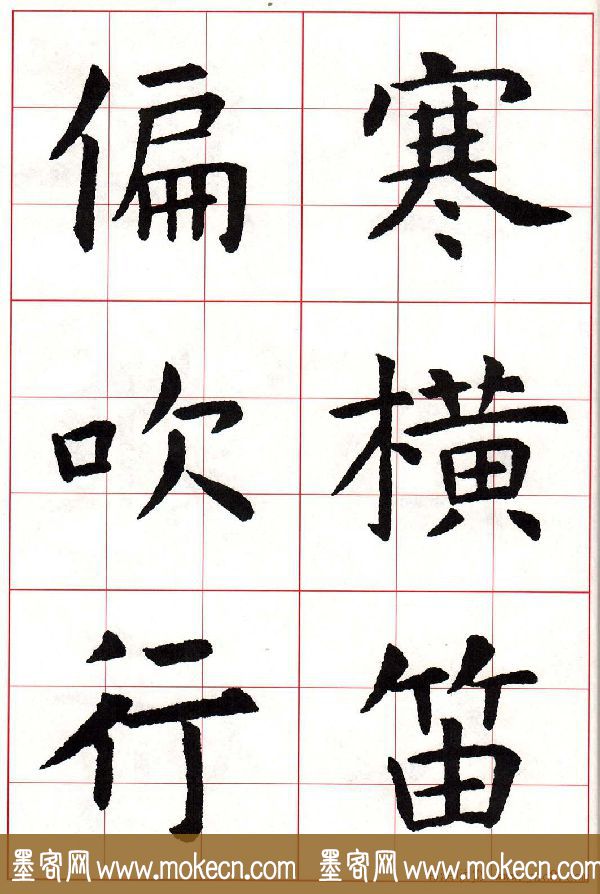 寒橫笛
偏吹行
墨客网 www.mokecn.com 墨客网 www.mokecn.com